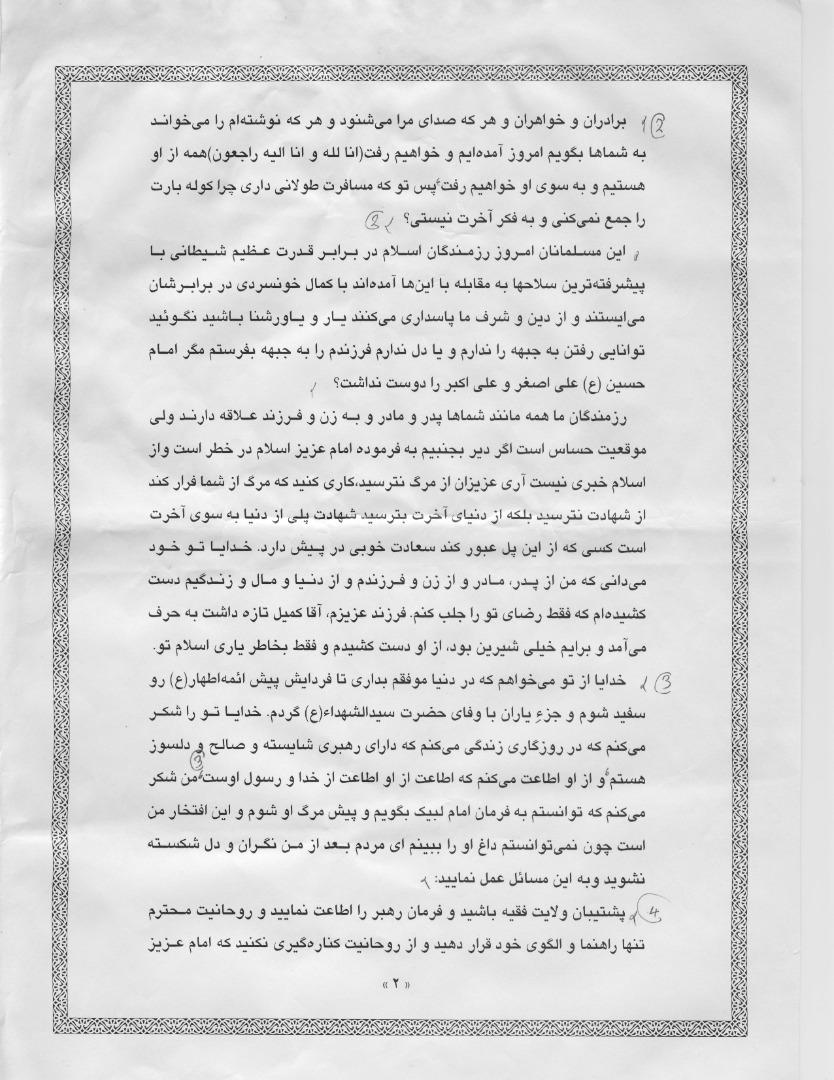 2 برادران و خواهران و هر که صدای مرا می‌شنود و هر که نوشته‌ام را می‌خواند
به شماها بگویم امروز آمده‌ایم و خواهیم رفت(انا لله و انا الیه راجعون)همه از او
هستیم و به سوی او خواهیم رفت پس تو که مسافرت طولانی داری چرا کوله بارت
را جمع نمی‌کنی و به فکر آخرت نیستی؟ 2
این مسلمانان امروز رزمندگان اسلام در برابر قدرت عظیم شیطانی با
پیشرفته‌ترین سلاحها به مقابله با این‌ها آمده‌اند با کمال خونسردی در برابرشان
می‌ایستند و از دین و شرف ما پاسداری می‌کنند یار و یاورشنا باشید نگوئید
توانایی رفتن به جبهه را ندارم و یا دل ندارم فرزندم را به جبهه بفرستم مگر امام
حسین (ع) علی اصغر و علی اکبر را دوست نداشت؟
رزمندگان ما همه مانند شماها پدر و مادر و به زن و فرزند علاقه دارند ولی
موقعیت حساس است اگر دیر بجنبیم به فرموده امام عزیز اسلام در خطر است واز
اسلام خبری نیست آری عزیزان از مرگ نترسید،کاری کنید که مرگ از شما فرار کند
از شهادت نترسید بلکه از دنیای آخرت بترسید شهادت پلی از دنیا به سوی آخرت
است کسی که از این پل عبور کند سعادت خوبی در پیش دارد. خدایا تو خود
می‌دانی که من از پدر، مادر و از زن و فرزندم و از دنیا و مال و زندگیم دست
کشیده‌ام که فقط رضای تو را جلب کنم. فرزند عزیزم، آقا کمیل تازه داشت به حرف
می‌آمد و برایم خیلی شیرین بود، از او دست کشیدم و فقط بخاطر یاری اسلام تو.
3 خدایا از تو می‌خواهم که در دنیا موفقم بداری تا فردایش پیش ائمه‌اطهار(ع) رو
سفید شوم و جزءِ یاران با وفای حضرت سیدالشهداء(ع) گردم. خدایا تو را شکر
می‌کنم که در روزگاری زندگی می‌کنم که دارای رهبری شایسته و صالح و دلسوز
هستم و از او اطاعت می‌کنم که اطاعت از او اطاعت از خدا و رسول اوست 3 من شکر
می‌کنم که توانستم به فرمان امام لبیک بگویم و پیش مرگ او شوم و این افتخار من
است چون نمی‌توانستم داغ او را ببینم ای مردم بعد از من نگران و دل شکسته
نشوید وبه این مسائل عمل نمایید:
4 پشتیبان ولایت فقیه باشید و فرمان رهبر را اطاعت نمایید و روحانیت محترم
تنها راهنما و الگوی خود قرار دهید و از روحانیت کناره‌گیری نکنید که امام عزیز
« ۲ »